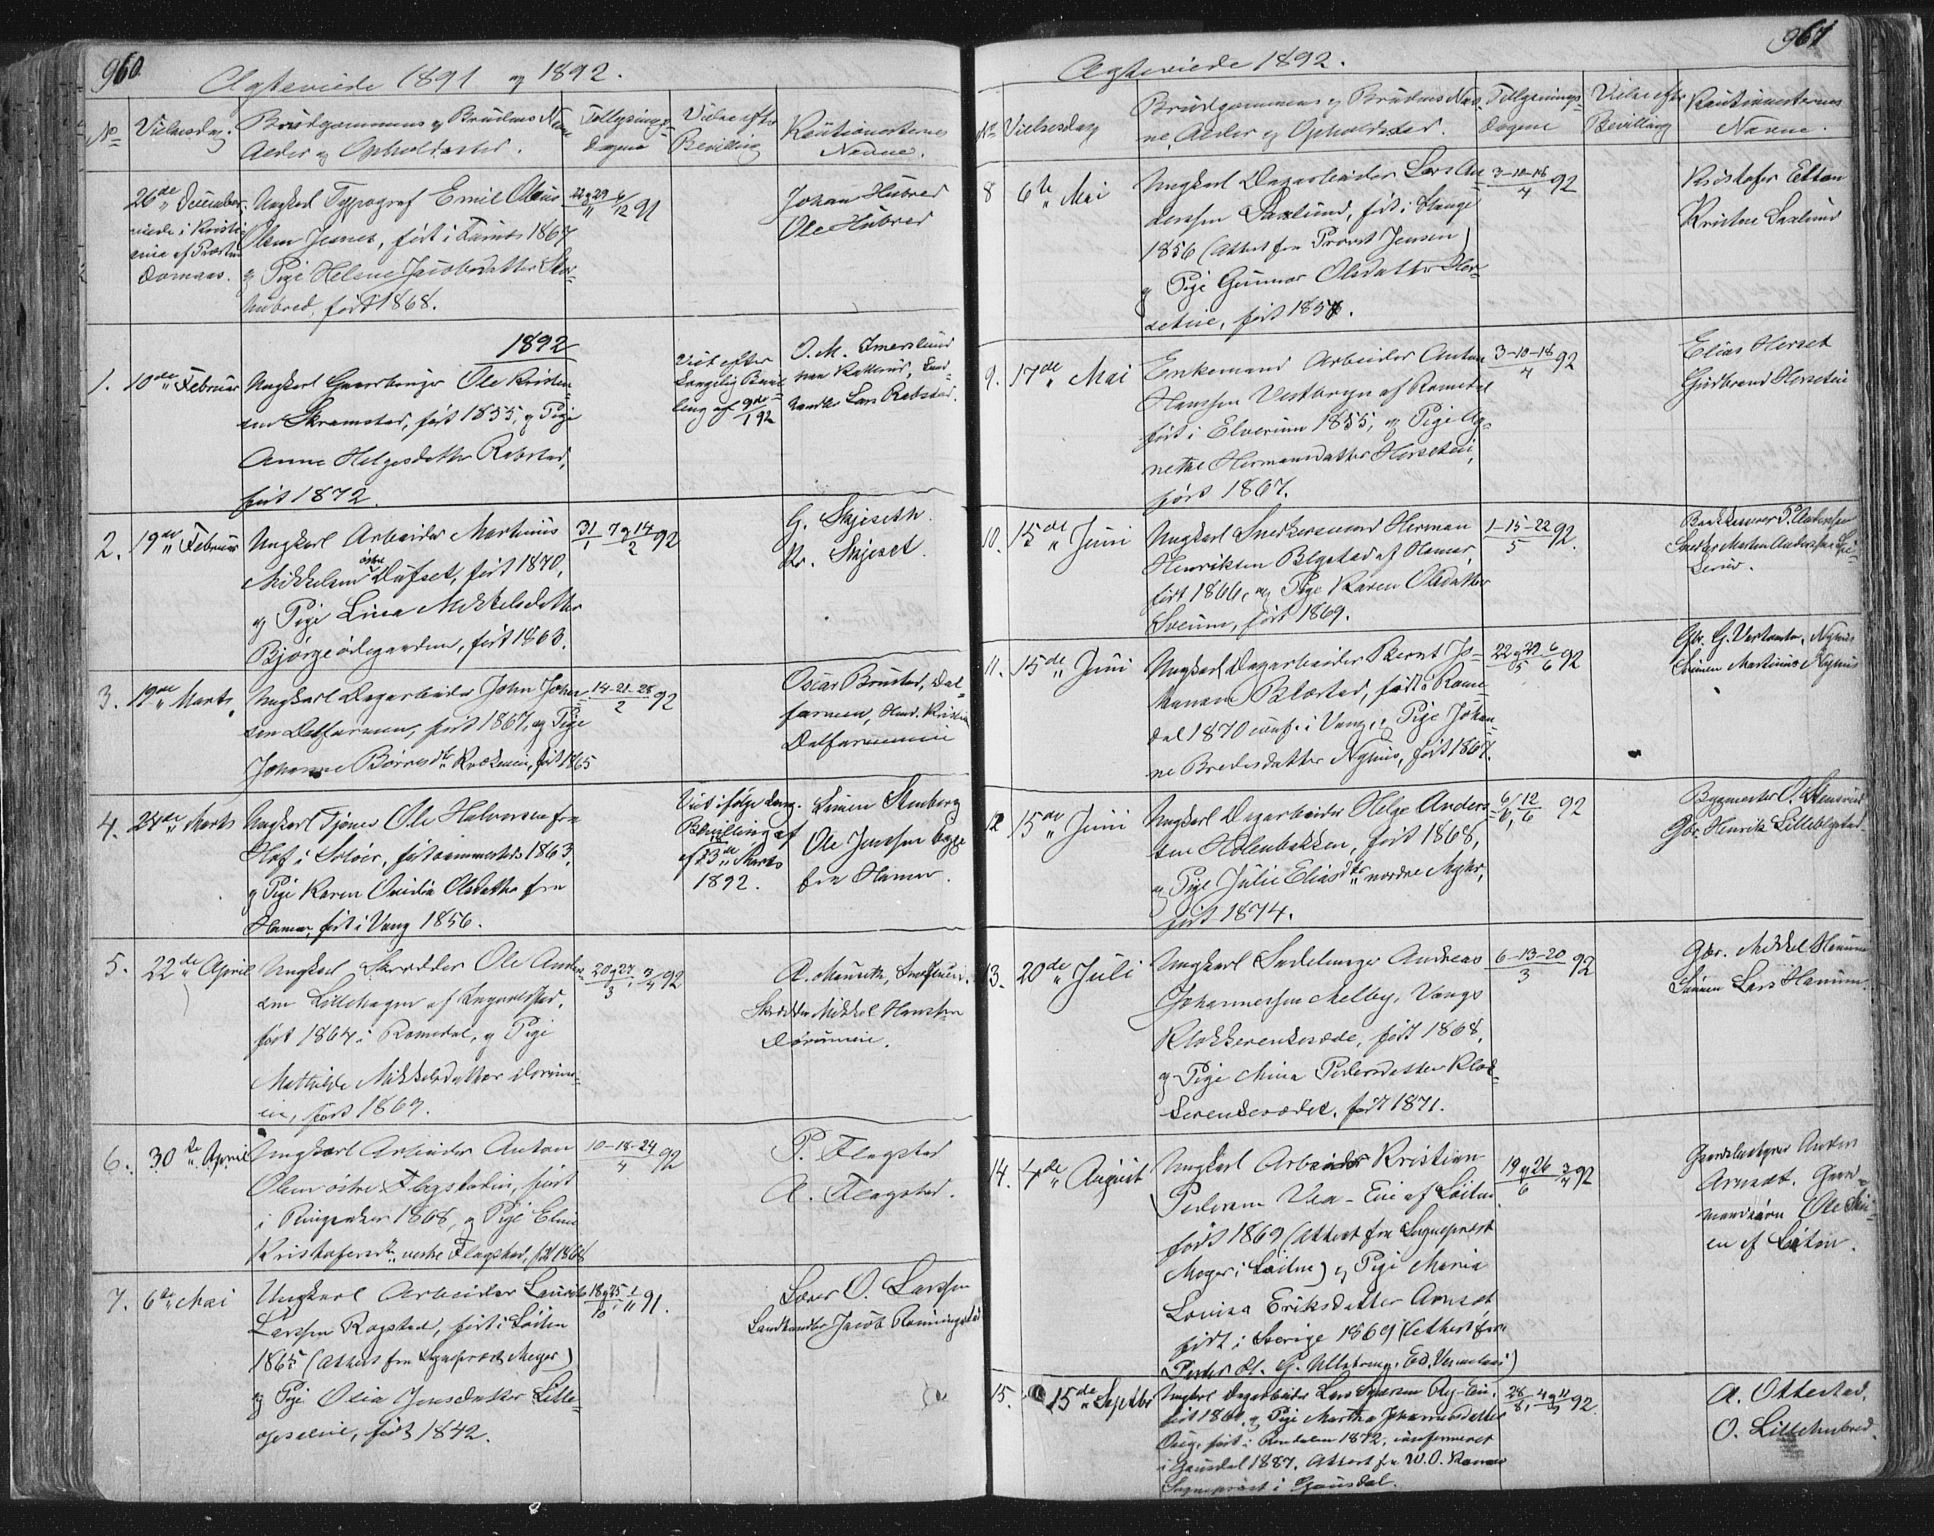 960.
Ægteviede 1891 og 1892.
No
Vielsesdag.
Brudgommens og Brudens Navne
Alder og Opholdssted.
Tillysnings-
dagene
Vielse efter
Bevilling
Kautionisternes
Navne.
26de December
viede i Kristi-
ania af Presten
Ungkarl Typograf Emil Olaus
Olsen Jesnes, født i Furnes 1867
og Pige Helene Jacobsdatter Stor-
hubred, født 1868.
22 og 29/11 6/12 91
Johan Hubred
Ole Hubred
1892
1.
10de Februar
Ungkarl Gaardbruger Ole Kristen-
sen Skramstad, født 1855, og Pige
Anne Helgesdatter Rabstad,
født 1872.
Viet efter
Kongelig Bevil-
ling af 9de/1 92
O. M. Imerslund
Lars Rabstad.
2.
19de Februar
Ungkarl Arbeider Martinius
Mikkelsen østre Dufset, født 1870,
og Pige Lina Mikkelsdatter
Bjørgeødegaarden, født 1863.
31/1 7 og 14/2 92
G. Skjeseth.
Kr. Skjeset.
3.
19de Marts
Ungkarl Dagarbeider John Johan-
sen Dalfarmen, født 1867, og Pige
Johanne Børresdtr. født 1865
14-21-28/2 92
Oscar Brustad, Dal-
farmen, Kristian
Dalfarmeneie
4.
28de Marts
Ungkarl Tjener Ole Halvorsen fra
Hof i Solør, født sammesteds 1863,
og Pige Karen Oxilia Olsdatter fra
Hamar, født i Vang 1856.
Viet ifølge Kong.
Bevilling af
af 23de Marts
1892.
Simen Stenberg
Ole Jenssen Bygge
fra Hamar.
5.
22de April
Ungkarl Skrædder Ole Ander-
sen Lillehagen af Ingvoldstad,
født 1867 i Romedal, og Pige
Mathilde Mikkelsdatter Dørum-
eie, født 1869.
20 og 27/3, 3/4 92
Skrædder Mikkel Hanssen
Dørumeie.
6.
30te April
Ungkarl Arbeider Anton
Olsen østre Flagstadeie, født
i Ringsaker 1868, og Pige Eline
Kristofersdtr. vestre Flagstad, født 1868
10-18-24/4 92
P. Flagstad
A. Flagstad.
7.
6te Mai
Ungkarl Arbeider Laurits
Larssen Rogstad, født i Løiten
1865 (Attest fra Sognepræst Meyer)
og Pige Olia Jensdatter Lille-
opsaleie, født 1842.
18 og 25/10 1/11 91.
Lærer O. Larssen
Landhandler Jacob Rønningstad
961
Ægteviede 1892.
No
Vielsesdag
Brudgommens og Brudens Nav-
ne, Alder og Opholdssted.
Tillysnings-
dagene
Vielse efter
Bevilling
Kautionisternes
Navne.
8
6te Mai
Ungkarl Dagarbeider Lars An-
derssen Saxlund, født i Stange
1856 (Attest fra Provst Jensen)
og Pige Gunnor Olsdatter Her-
seteie, født 1858.
3-10-18/4 92
Kristofer Elton
Kristen Saxlund
9.
17de Mai
Enkemand Arbeider Anton
Hanssen Vestbryn af Romedal
født i Elverum 1855, og Pige Ag-
nethe Hermansdatter Herseteie,
født 1867.
3-10-18/4 92
Elias Herset
Gudbrand Herseteie
10.
15de Juni
Ungkarl Snedkersvend Herman
Henriksen Blystad af Hamar,
født 1866, og Pige Karen Olsdatter
Sveum, født 1869.
1-15-22/5 92.
Snedker Morten Anderssen
11.
15de Juni
Ungkarl Dagarbeider Bernt Jo-
hansen Blæstad, født i Rome-
dal 1870 conf. i Vang, og Pige Johan-
ne Bredesdatter Nyhus, født 1867.
22 og 29/5 6/6 92
Gbr. G. Vestenten, Nyhus
Simen Martinus Nyhus
12
15de Juni
Ungkarl Dagarbeider Helge Anders-
sen Holenbakken, født 1868,
og Pige Julie Eliasdtr. nordre Myhr,
født 1874.
6/6, 12/6 92
Bygmester O. Stensrud
Gbr. Henrik Lilleblystad
13.
20de Juli
Ungkarl Sadelmager Andreas
Johannessen Melby, Vangs
Klokkerenkesæde, født 1868,
og Pige Mina Pedersdatter Klok-
kerenkesædet, født 1871.
6-13-20/3 92
Gbr. Mikkel Hanum
Simen Lars Hanum.
14.
4de August
Ungkarl Arbeider Kristian
Pedersen Vea-Eie af Løiten
født 1869 (Attest fra Sognepræst
Meyer i Løiten) og Pige Maria
Lovisa Eriksdatter Arneset
født i Sverige 1869 (Attest fra
19 og 26/6 3/7 92
Gaardbestyrer Anders
Arneset. Gaard-
mandssøn Ole Skin-
en af Løiten.
15.
15de Septbr
Ungkarl Dagarbeider Lars Syversen Ry-Eie,
født 1860, og Pige Martha Johannesdatter
født i Rendalen 1872, confirmeret
i Gausdal 1887. Attest fra W. O.
Sognepræst i Gausdal.
28/8, 4 og 11/9 92.
A. Ottestad.
O. Lillehubred.